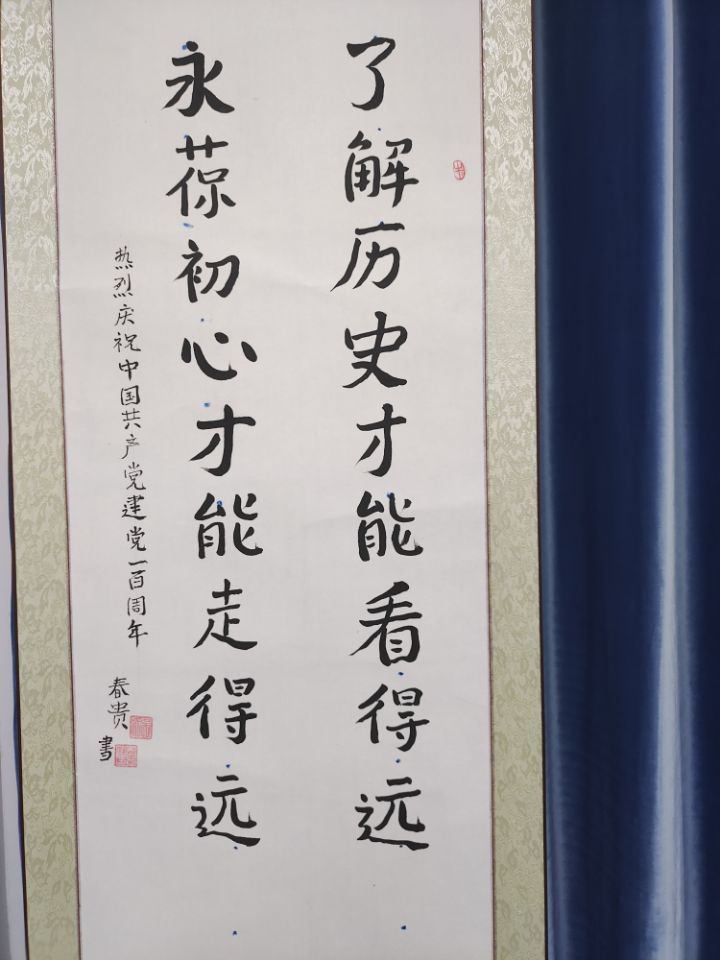 了解历史才能看得远
永葆初心才能走得远
热烈庆祝中国共产党建党一百周年
春贵书